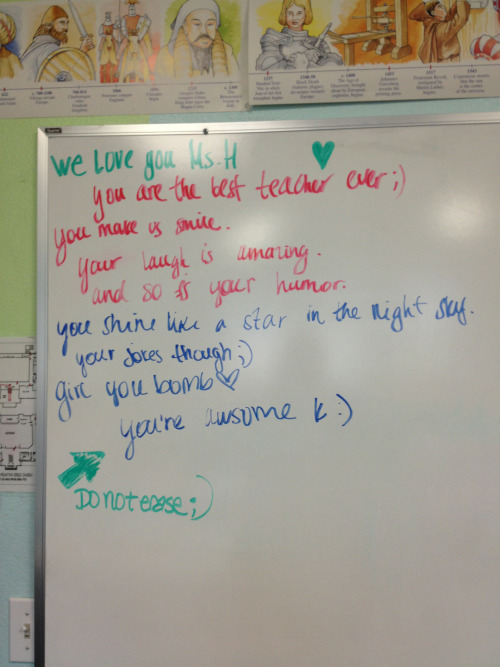 1066
1348-50
c. 1400
1455
1517
1543
We Love you Ms. H ♥
you are the best teacher ever ;)
you make us smile.
your laugh is amazing.
and so is your humor.
you shine like a star in the night sky.
your jokes though ;)
girl you bomb ♡
you're awsome k :)
DO not erase ;)